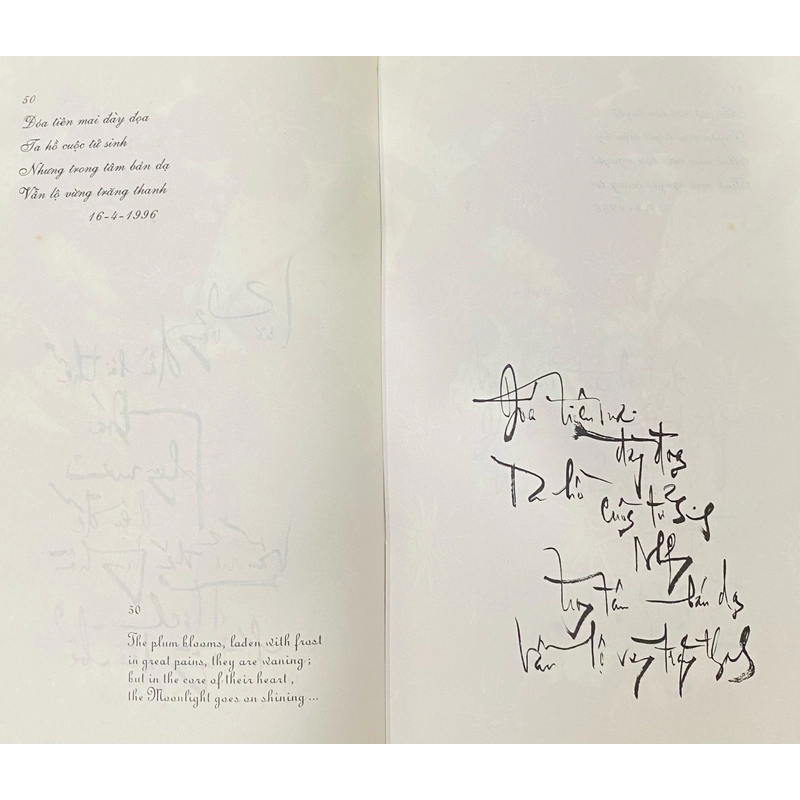 50
Đóa tiên mai đày đọa
Ta hồ cuộc tử sinh
Nhưng trong tâm bán dạ
Vẫn lộ vừng trăng thanh
16-4-1996
50
The plum blooms, laden with frost
in great pains, they are waning ;
but in the core of their heart ,
the Moonlight goes on shining ...
Đóa tiên mai
đày đọa
Ta hồ
cuộc tử sinh
Nhưng
trong tâm bán dạ
Vẫn lộ vừng trăng thanh